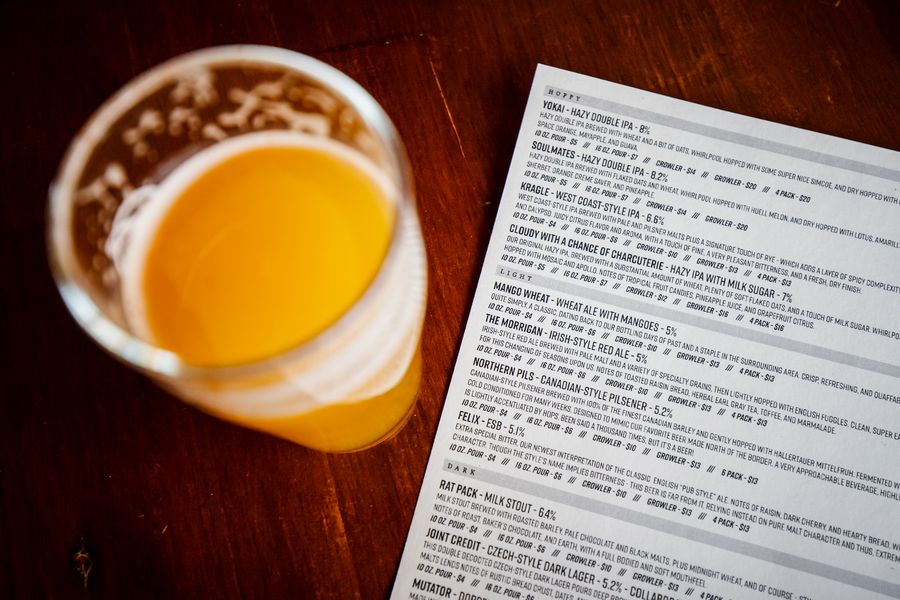 HOPPY
YOKAI - HAZY DOUBLE IPA - 8%
HAZY DOUBLE IPA BREWED WITH WHEAT AND A BIT OF OATS, WHIRLPOOL HOPPED WITH SOME SUPER NICE SIMCOE, AND DRY HOPPED WITH
SPACE ORANGE, MAYAPPLE, AND GUAVA.
10 OZ. POUR - $5 /// 16 OZ. POUR - $7 /// CROWLER - $14 /// GROWLER - $20 /// 4 PACK - $20
SOULMATES - HAZY DOUBLE IPA - 8.2%
HAZY DOUBLE IPA BREWED WITH FLAKED OATS AND WHEAT, WHIRLPOOL HOPPED WITH HUELL MELON, AND DRY HOPPED WITH LOTUS, AMARILL
SHERBET, ORANGE CREME SAVER, AND PINEAPPLE.
10 OZ. POUR - $5 /// 16 OZ. POUR - $7 /// CROWLER - $14 /// GROWLER - $20
KRAGLE - WEST COAST-STYLE IPA - 6.6%
WEST COAST-STYLE IPA BREWED WITH PALE AND PILSNER MALTS PLUS A SIGNATURE TOUCH OF RYE - WHICH ADDS A LAYER OF SPICY COMPLEXITY
AND CALYPSO. JUICY CITRUS FLAVOR AND AROMA, WITH A TOUCH OF PINE, A VERY PLEASANT BITTERNESS, AND A FRESH, DRY FINISH.
10 OZ. POUR - $4 /// 16 OZ. POUR - $6 /// CROWLER - $10 /// GROWLER - $13 /// 4 PACK - $13
CLOUDY WITH A CHANCE OF CHARCUTERIE - HAZY IPA WITH MILK SUGAR - 7%
OUR ORIGINAL HAZY IPA, BREWED WITH A SUBSTANTIAL AMOUNT OF WHEAT, PLENTY OF SOFT FLAKED OATS, AND A TOUCH OF MILK SUGAR. WHIRLPOO
HOPPED WITH MOSAIC AND APOLLO. NOTES OF TROPICAL FRUIT CANDIES, PINEAPPLE JUICE, AND GRAPEFRUIT CITRUS.
10 OZ. POUR - $5 /// 16 OZ. POUR - $7 /// CROWLER - $12 /// GROWLER - $16 /// 4 PACK - $16
LIGHT
MANGO WHEAT - WHEAT ALE WITH MANGOES - 5%
QUITE SIMPLY A CLASSIC, DATING BACK TO OUR BOTTLING DAYS OF PAST AND A STAPLE IN THE SURROUNDING AREA. CRISP, REFRESHING, AND QUAFFAB
10 OZ. POUR - $4 /// 16 OZ. POUR - $6 /// CROWLER - $10 /// GROWLER - $13 /// 4 PACK - $13
THE MORRIGAN - IRISH-STYLE RED ALE - 5%
IRISH-STYLE RED ALE BREWED WITH PALE MALT AND A VARIETY OF SPECIALTY GRAINS, THEN LIGHTLY HOPPED WITH ENGLISH FUGGLES. CLEAN, SUPER EA
FOR THIS CHANGING OF SEASONS UPON US. NOTES OF TOASTED RAISIN BREAD, HERBAL EARL GRAY TEA, TOFFEE, AND MARMALADE.
10 OZ. POUR - $4 /// 16 OZ. POUR - $6 /// CROWLER - $10 /// GROWLER - $13 /// 4 PACK - $13
NORTHERN PILS - CANADIAN-STYLE PILSENER - 5.2%
CANADIAN-STYLE PILSENER BREWED WITH 100% OF THE FINEST CANADIAN BARLEY AND GENTLY HOPPED WITH HALLERTAUER MITTELFRUH, FERMENTED W
COLD CONDITIONED FOR MANY WEEKS. DESIGNED TO MIMIC OUR FAVORITE BEER MADE NORTH OF THE BORDER. A VERY APPROACHABLE BEVERAGE, HIGHL
IS LIGHTLY ACCENTUATED BY HOPS. BEEN SAID A THOUSAND TIMES, BUT IT'S A BEER!
10 OZ. POUR - $4 /// 16 OZ. POUR - $6 /// CROWLER - $10 /// GROWLER - $13 /// 6 PACK - $13
FELIX - ESB - 5.1%
EXTRA SPECIAL BITTER, OUR NEWEST INTERPRETATION OF THE CLASSIC ENGLISH "PUB STYLE" ALE. NOTES OF RAISIN, DARK CHERRY, AND HEARTY BREAD, W
CHARACTER, THOUGH THE STYLE'S NAME IMPLIES BITTERNESS - THIS BEER IS FAR FROM IT, RELYING INSTEAD ON PURE MALT CHARACTER AND THUS, EXTREM
10 OZ. POUR - $4 /// 16 OZ. POUR - $6 /// CROWLER - $10 /// GROWLER - $13 /// 4 PACK - $13
DARK
RAT PACK - MILK STOUT - 6.4%
MILK STOUT BREWED WITH ROASTED BARLEY, PALE CHOCOLATE AND BLACK MALTS, PLUS MIDNIGHT WHEAT, AND OF COURSE -
NOTES OF ROAST, BAKER'S CHOCOLATE, AND EARTH, WITH A FULL BODIED AND SOFT MOUTHFEEL.
10 OZ. POUR - $4 /// 16 OZ. POUR - $6 /// CROWLER - $10 /// GROWLER - $13 /// 4 PACK - $13
JOINT CREDIT - CZECH-STYLE DARK LAGER - 5.2% - COLLABOR
THIS DOUBLE DECOCTED CZECH-STYLE DARK LAGER POURS DEEP
MALTS LENDS NOTES OF RUSTIC BREAD CRUST, DATES,
10 OZ. POUR - $4 /// 16 OZ. POUR - $6
MUTATOR -